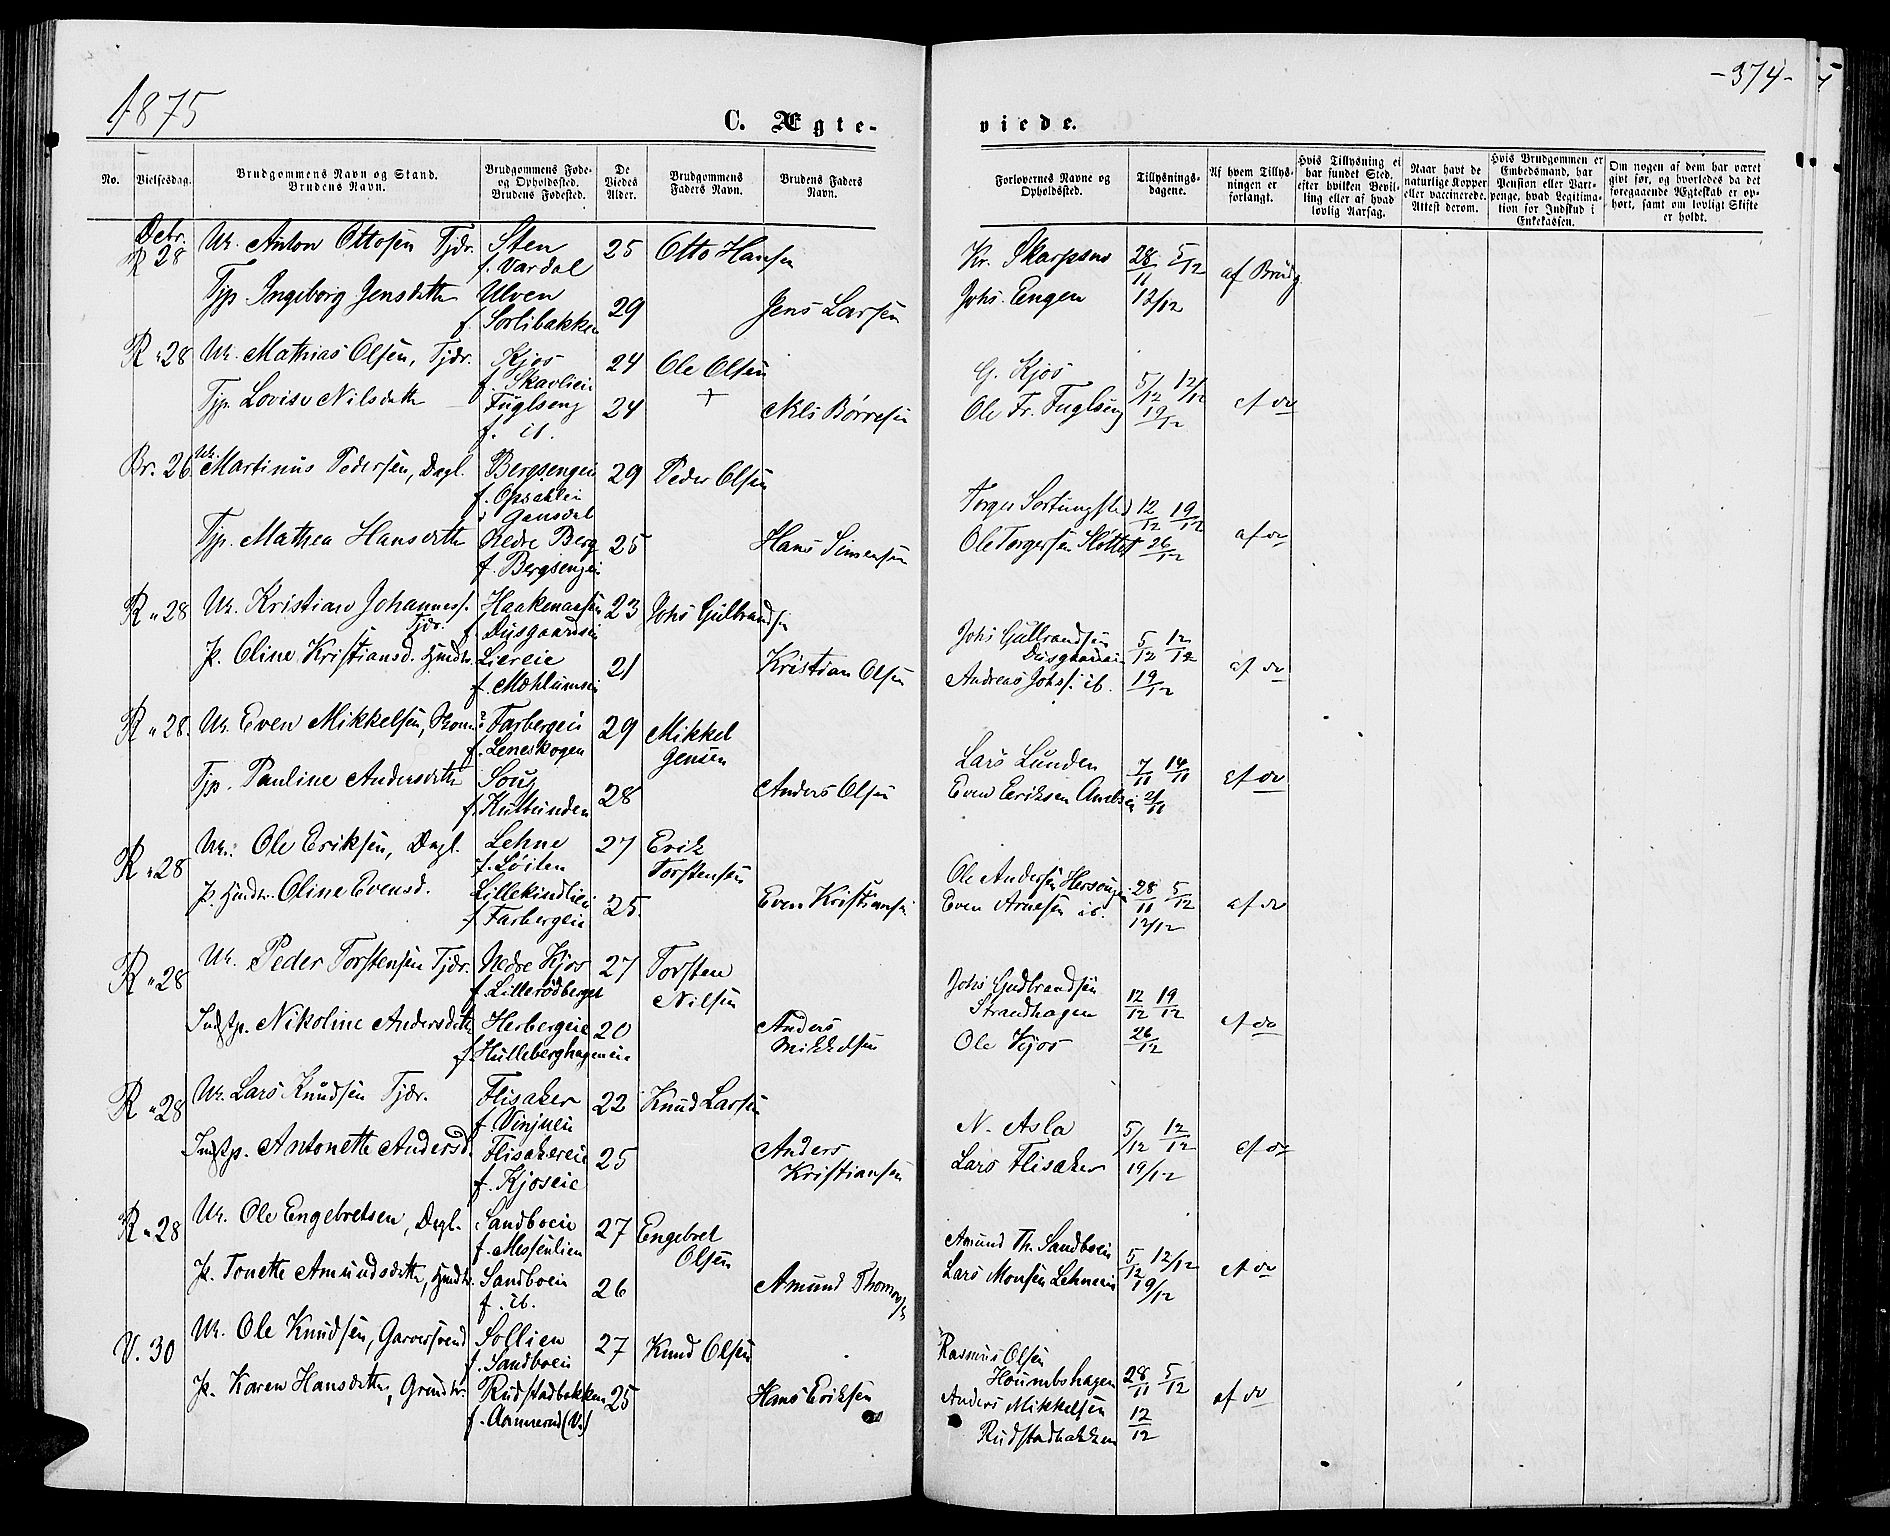 1875
-374-
C. Ægte-
viede.
No.
Vielsesdag.
Brudgommens Navn og Stand.
Brudens Navn.
Brudgommens Føde-
og Opholdssted.
Brudens Fødested.
De
Viedes
Alder.
Brudgommens
Faders Navn.
Brudens Faders
Navn.
Forlovernes Navne og
Opholdssted.
Tillysnings-
dagene.
Af hvem Tillys-
ningen er
forlangt.
Hvis Tillysning ei
har fundet Sted,
efter hvilken Bevil-
ling eller af hvad
lovlig Aarsag.
Naar havt de
naturlige Kopper
eller vaccinerede.
Attest derom.
Hvis Brudgommen er
Embedsmand, har
Pension eller Vart-
penge, hvad Legitima-
tion for Indskud i
Enkekassen.
Om nogen af dem har været
givt før, og hvorledes da det
foregaaende Ægteskab er op-
hørt, samt om lovligt Skifte
er holdt.
Decbr.
R 28 Uk. Anton Ottosen Tjdr. Sten 25 Otto Hansen Kr. Skarpsno 28/11 5/12 af Brudg
f. Vardal
Tjp Ingeborg Jensdatter Ulven 29 Jens Larsen Johs. Engen 12/12
f. Sorlibakken
R " 28 Uk. Mathias Olsen, Tjdr. Kjos 24 Ole Olsen G. Kjos 5/12 12/12
f. Skavlien
Tjp. Lovise Nilsdatter Fuglseng 24 + Nils Børresen Ole Fr. Fuglseng 19/12 af do
f. ib.
Br. 26 Uk. Martinus Pedersen, Dagl. Bergsengen 29 Peder Olsen
f. Opsahlei
i Gausdal Torger Sortungsted 12/12 19/12
Tjp. Mathea Hansdatter Nedre Berg 25 Hans Simensen Ole Torgersen Slåttet 26/12 af do
f. Bergsengei
R " 28 Uk. Kristian Johanness. Haakenaasen 23 Johs Gulbrandsen
Tjdr. f. Diisgaardsei Johs Gulbrandsen 5/12 12/12
P. Oline Kristiansd. Liereie 21 Kristian Olsen Andreas Johs. ib. 19/12 af do
f. Mæhlumsei
R " 28. Uk. Even Mikkelsen, Farbergeie 29 Mikkel
f. Leneskogen Jensen Lars Lunden 7/11 14/11
Tjp. Pauline Andersdatter Soug 28 Anders Olsen Even Eriksen 21/11 af do
R " 28 Uk. Ole Eriksen, Dagl. Lehne 27 Erik
f. Løiten Torstensen
P. Oline Evensd. Lillekindlien 25 Even Kristiansen Ole Andersen 28/11 5/12 af do
f. Farbergeie Even Arnesen ib. 12/12
R " 28 Uk. Peder Torstensen Tjdr. Nedre Kjos 27 Torsten Johs Gudbrandsen 12/12 19/12
f. Lillerødberget Nilsen Strandhagen
Indstp. Nikoline Andersdatter Herbergeie 20 Anders Ole Kjos 26/12 af do
f. Hulleberghagenie Mikkelsen
R " 28 Uk. Lars Knudsen Tjdr. Flisaker 22 Knud Larsen N. Asla 5/12 12/12
f. Vinjuei
Indstp. Antonette Andersd. Flisakereie 25 Anders Lars Flisaker 19/12 af do
f. Kjoseie Kristiansen
R " 28 Uk. Ole Engebretsen, Dagl. Sandboeie 27 Engebret Amund Th. Sandboeie 5/12 12/12
f. Messenlien Olsen
P. Tonette Amundsdatter, Sandboeie 26 Amund Thomas Lars Monsen Lehneeie 19/12 af do
f. ib.
V. 30 Uk. Ole Knudsen, Garversvend Sollien 27 Knud Olsen Rasmus Olsen
f. Sandboeie Houmbshagen 28/11 5/12
P. Karen Hansdatter, Rudstadbakken 25 Hans Eriksen Anders Mikkelsen 12/12 af do
f. Aamerud (V.) Rudstadbakken